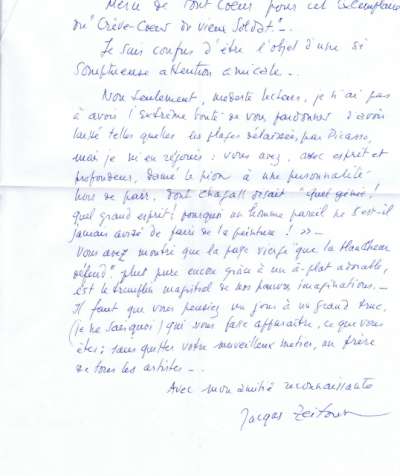 Merci de Tout Coeur pour cet Exemplaire
du "Crève-Coeur du vieux Soldat"...
Je suis confus d'être l'objet d'une si
Somptueuse attention amicale...
Non Seulement, modeste lecteur, je n'ai pas
à avoir l'extrême bonté de vous pardonner d'avoir
laissé telles quelles les plages délaissées, par Picasso,
mais je m'en réjouis : vous avez, avec esprit et
profondeur, damé le pion à une personnalité
hors de pair, dont Chagall disait "quel génie !
quel grand esprit ! pourquoi un homme pareil ne s'est-il
jamais avisé de faire de la peinture ! » —
Vous avez montré que la page vierge "que la blancheur
défend" plus pure encore grâce à un à-plat adorable,
est le tremplin magistral de nos pauvres imaginations. —
Il faut que vous pensiez un jour à un grand truc,
(je ne sais quoi) qui vous fasse apparaître, ce que vous
êtes ; sans quitter votre merveilleux métier, un frère
de tous les artistes...
Avec mon amitié reconnaissante
Jacques Zeitoun